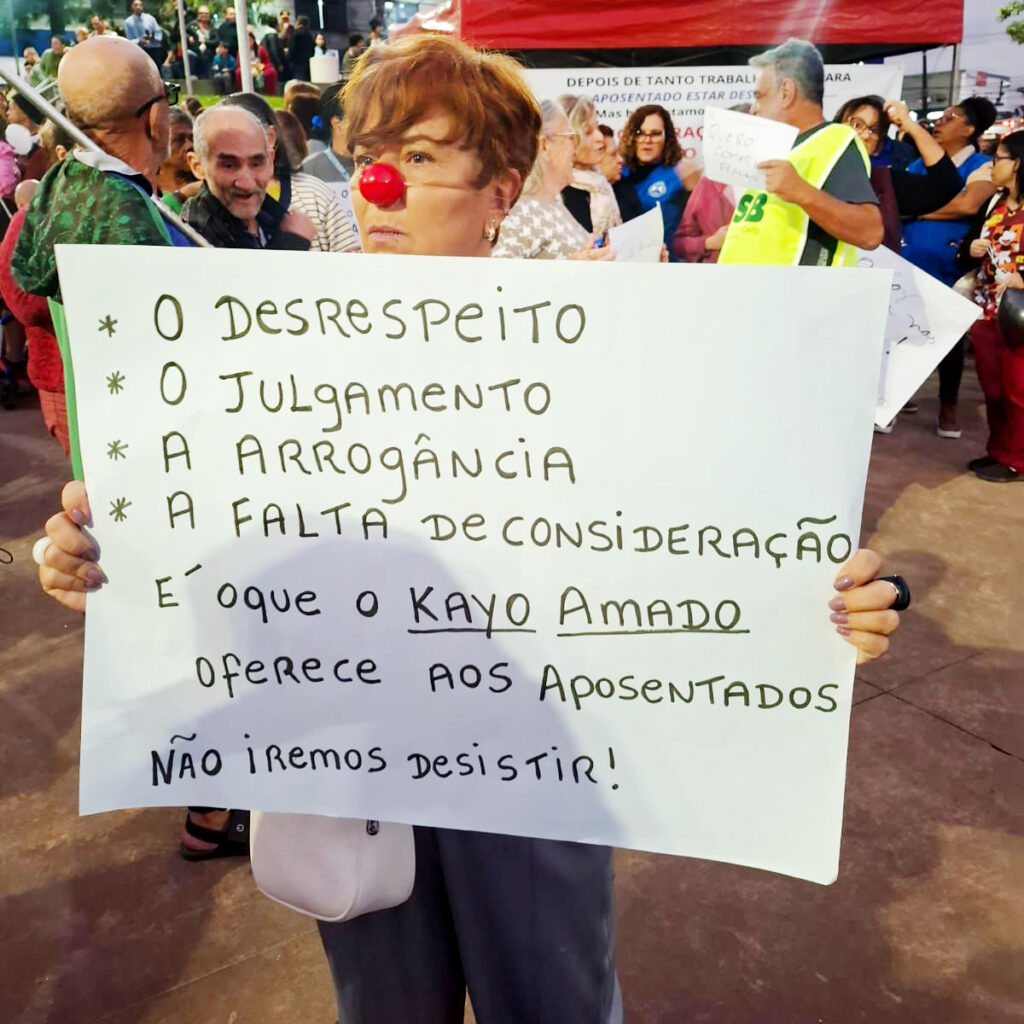 DEPOIS DE TANTO TRABALH ARA
APOSENTADO ESTAR DES
Mas h
QUERO
COMER
SB
* O DESRESPEITO
* O JULGAMENTO
* A ARROGÂNCIA
* A FALTA DE CONSIDERAÇÃO
E´ OQUE O KAYO AMADO
OFERECE AOS APOSENTADOS
NÃO IREMOS DESISTIR!